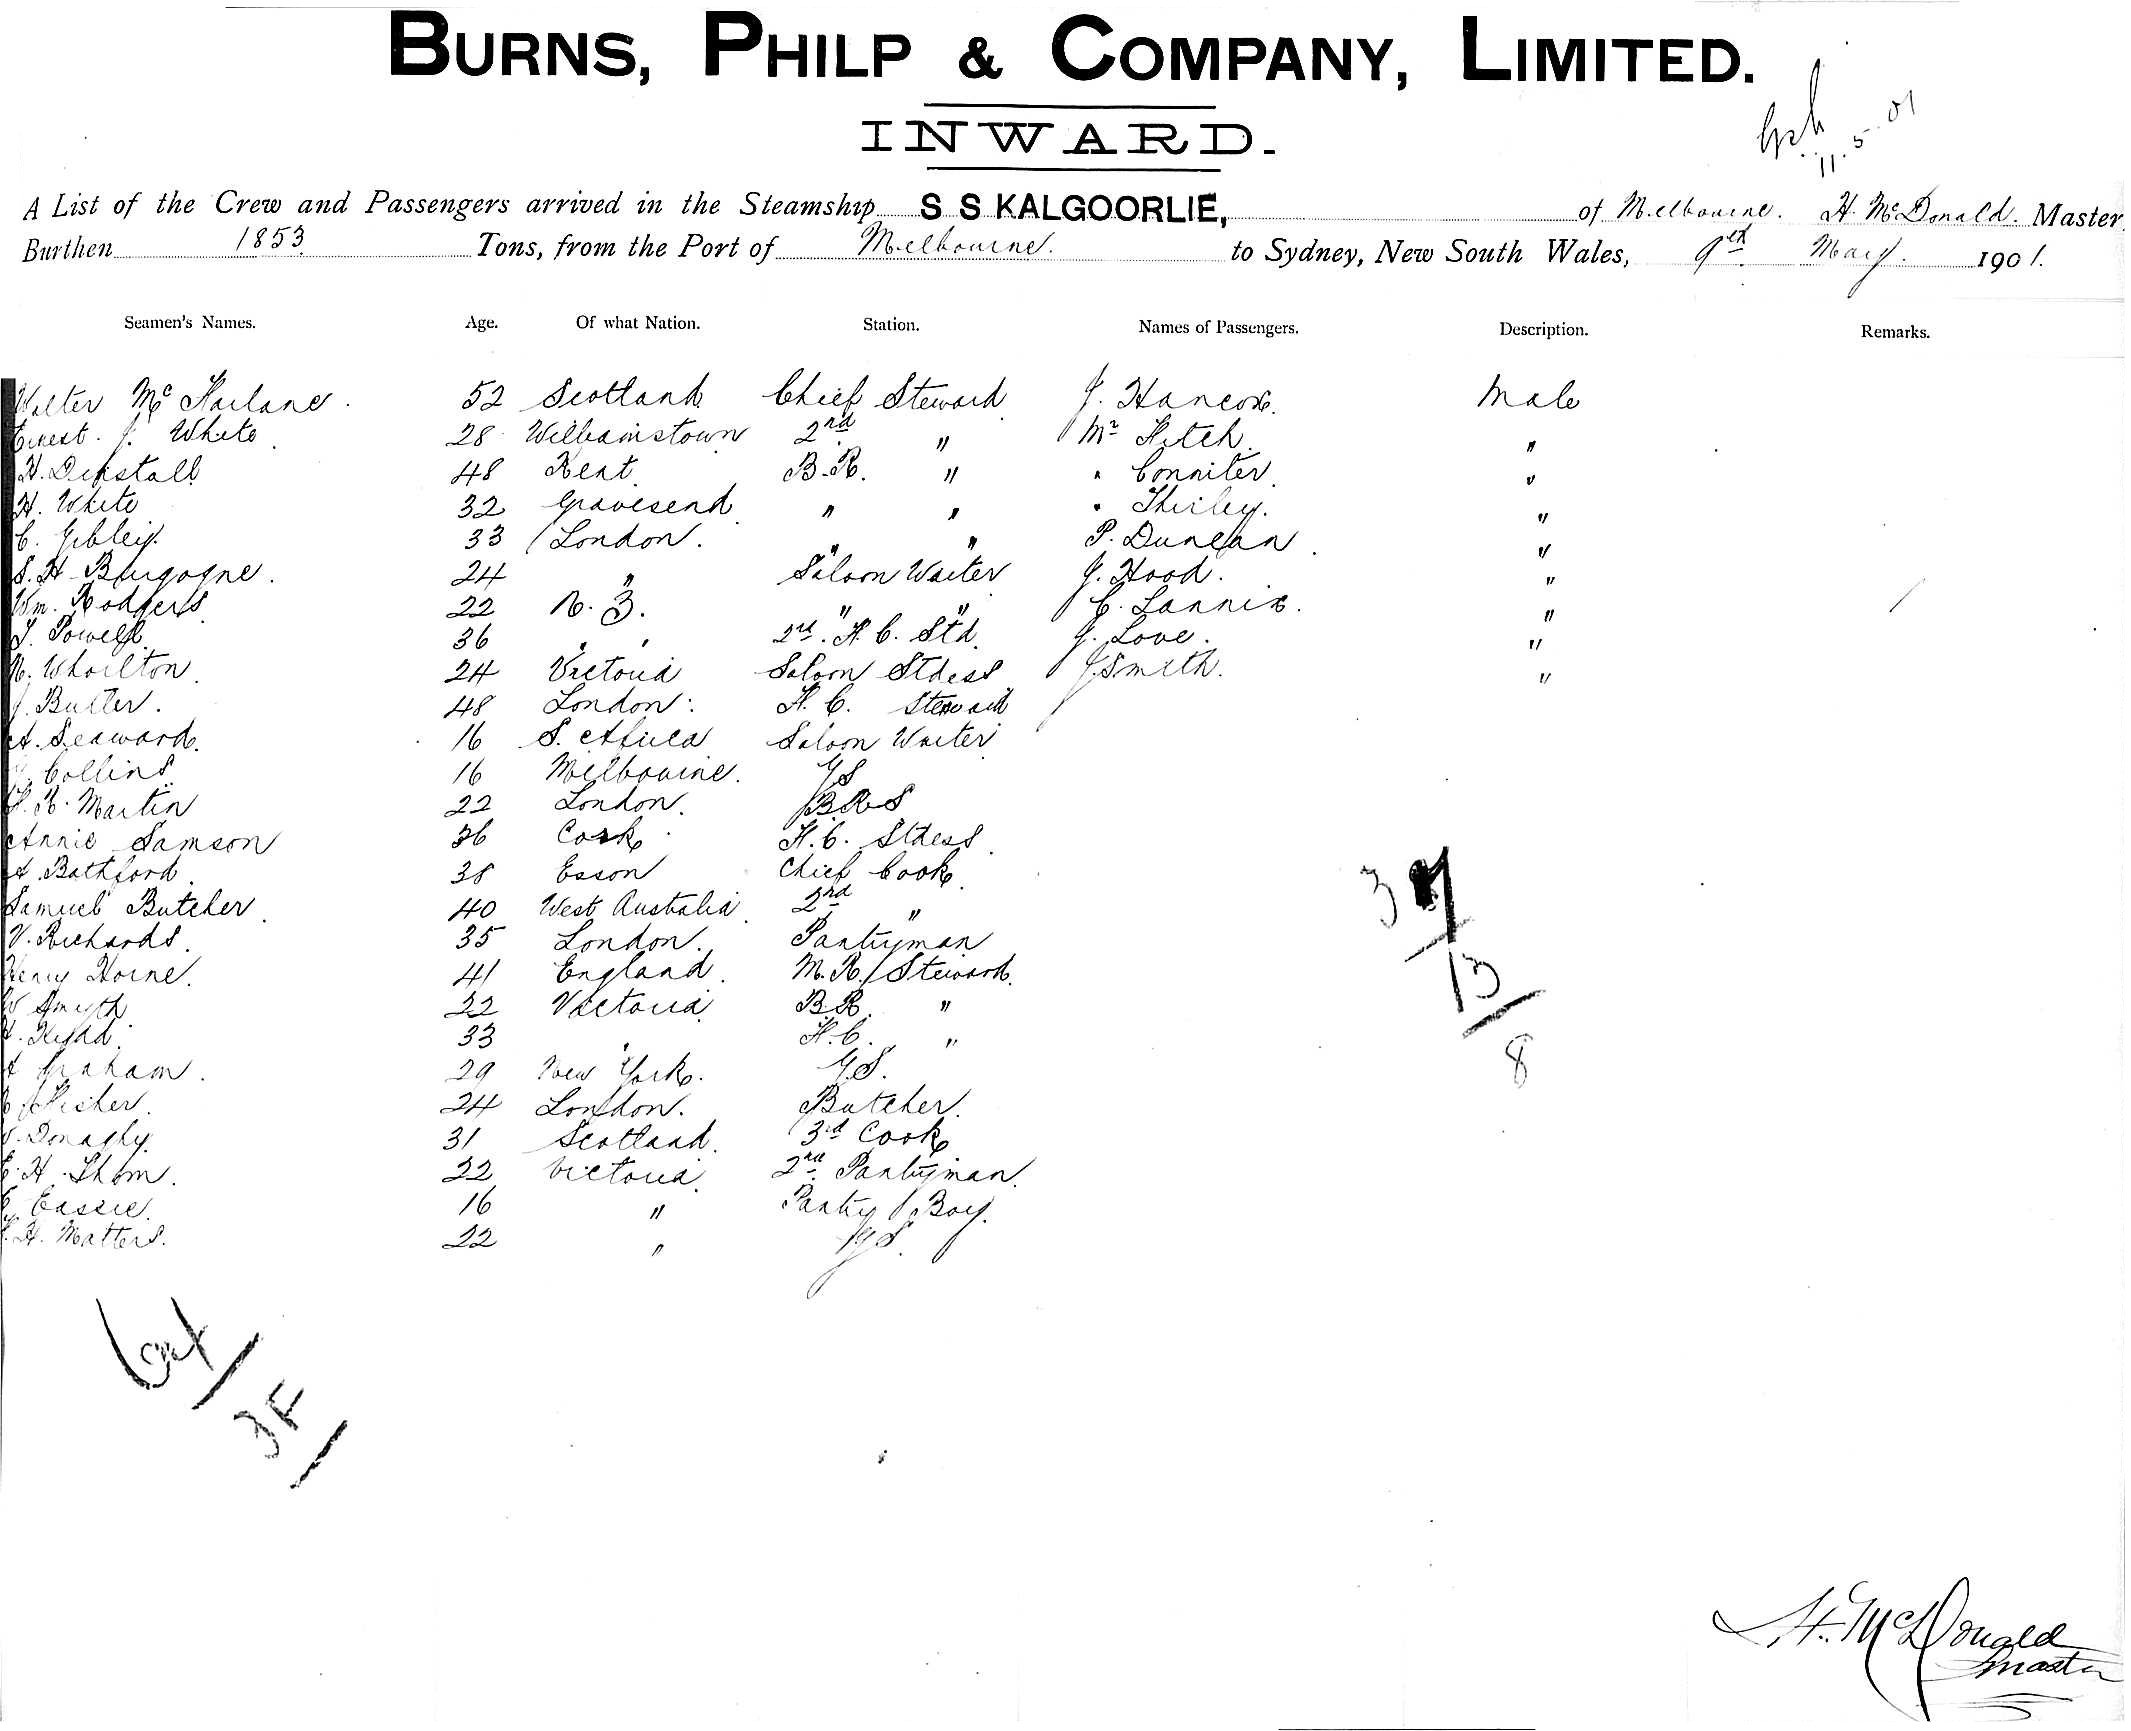 BURNS, PHILP & COMPANY, LIMITED.
INWARD.
11.5.01
A List of the Crew and Passengers arrived in the Steamship S S KALGOORLIE, of Melbourne. H. McDonald. Master
Burthen 1853 Tons, from the Port of Melbourne. to Sydney, New South Wales, 9th May. 1901.
Seamen's Names. Age. Of what Nation. Station. Names of Passengers. Description. Remarks.
Walter Mc Farlane. 52 Scotland Chief Steward J. Hancox. Male
Ernest. J. White 28 Williamstown 2nd " Mr Fitch. "
H. 48 Kent. B.R. " " Conniter. "
H. White 32 Gravesend " " " Shirley. "
33 London. " " P. Duncan. "
S. H. Burgogne. 24 " Saloon Waiter J. Hood. "
Wm. Rodgers 22 N. Z. " " C. Lannix. "
Powell 36 " " 2nd. F. C. Std. J. Love. "
Whorlton. 24 Victoria Saloon Stdess J. Smith. "
J. Butler. 48 London. F. C. Steward
A. Seaward. 16 S. Africa Saloon Waiter
Collins 16 Melbourne. GS
Martin 22 London. BRS
Annie Samson 36 Cork. F.C. Stdess.
A. Bathford. 38 Esson Chief Cook.
Samuel Butcher. 40 West Australia. 2nd "
V. Richards. 35 London. Pantryman
Henry Horne. 41 England. M.R. Steward.
Smyth 22 Victoria. B.R. "
33 " F.C. "
A Graham. 29 New York. G.S.
Fisher. 24 London. Butcher.
Donaghy. 31 Scotland. 3rd Cook
H. Thom. 22 Victoria. 2nd Pantryman.
Cassie. 16 " Pantry Boy.
H. Matters. 22 " GS.
3
13
8
64
3F
H. McDonald
Master